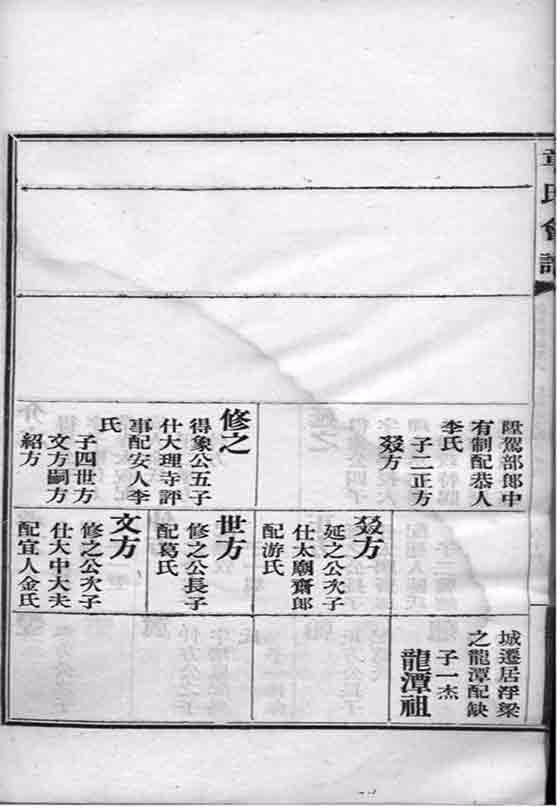 章氏會譜
陞駕部郎中
有制配恭人
李氏
子二正方
叕方
修之
得象公五子
仕大理寺評
事配安人李
氏
子四世方
文方嗣方
紹方
叕方
延之公次子
仕太廟齋郎
配游氏
世方
修之公長子
配葛氏
文方
修之公次子
仕大中大夫
配宜人金氏
城遷居浮梁
之龍潭配缺
子一杰
龍潭祖